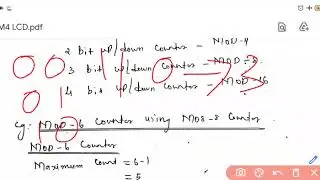 M4 LCD.pdf
2 bit up/down counter - MOD-4
3 bit up/down counter - MOD-8
4 bit up/down counter - MOD-16
eg: MOD-6 Counter using MOD-8 Counter
MOD-6 Counter
Maximum count = 6-1
= 5